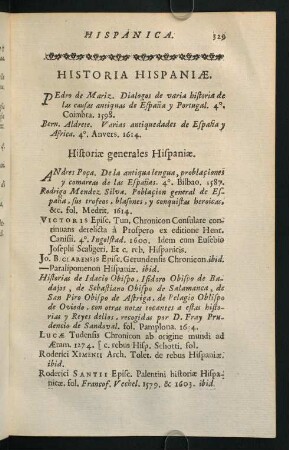 HISPANICA.
529
HISTORIA HISPANIÆ.
PEdro de Mariz. Dialogos de varia historia de
las causas antiguas de España y Portugal. 4º.
Coimbra. 1598.
Bern. Aldrete. Varias antiguedades de España y
Africa. 4º. Anvers. 1614.
Historiæ generales Hispaniæ.
ANdres Poça. De la antigua lengua, poblaçiones
y comarcas de las Españas. 4º. Bilbao. 1587.
Rodrigo Mendez Silva. Poblacion general de Es-
paña, sus trofeos, blasones, y conquistas heroicas,
&c. fol. Medrit. 1614.
VICTORIS Episc. Tun. Chronicon Consulare con-
tinuans derelicta à Prospero ex editione Henr.
Canisii. 4º. Ingolstad. 1600. Idem cum Eusebio
Josephi Scaligeri. Et c. reb. Hispanicis.
Jo. BICLARENSIS Episc. Gerundensis Chronicon. ibid.
—Paralipomenon Hispaniæ. ibid.
Historias de Idacio Obispo, Isidoro Obispo de Ba-
dajos, de Sebastiano Obispo de Salamanca, de
San Piro Obispo de Astorga, de Pelagio Obispo
de Oviedo, con otras notas tocantes a estas histo-
rias y Reyes dellos, recogidas por D. Fray Pru-
dencio de Sandoval. fol. Pamplona. 1614.
LUCÆ Tudensis Chronicon ab origine mundi ad
annum 1274. c. rebus Hisp. Schotti. fol.
Roderici XIMENII Arch. Tolet. de rebus Hispaniæ.
ibid.
Roderici SANTII Episc. Palentini historiæ Hispa-
nicæ. fol. Francof. Vechel. 1579. & 1603. ibid.